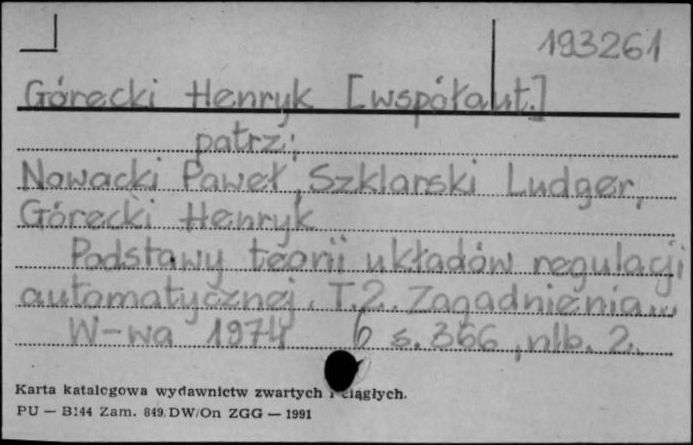 193261
Górecki Henryk [współaut.]
patrz:
Nowacki Paweł, Szklarski Ludger,
Górecki Henryk
Podstawy teorii układów regulacji
automatycznej. T.2. Zagadnienia...
W-wa 1974 s. 366, nlb. 2.
Karta katalogowa wydawnictw zwartych i ciągłych.
PU — B144 Zam. 849. DW/On ZGG — 1991